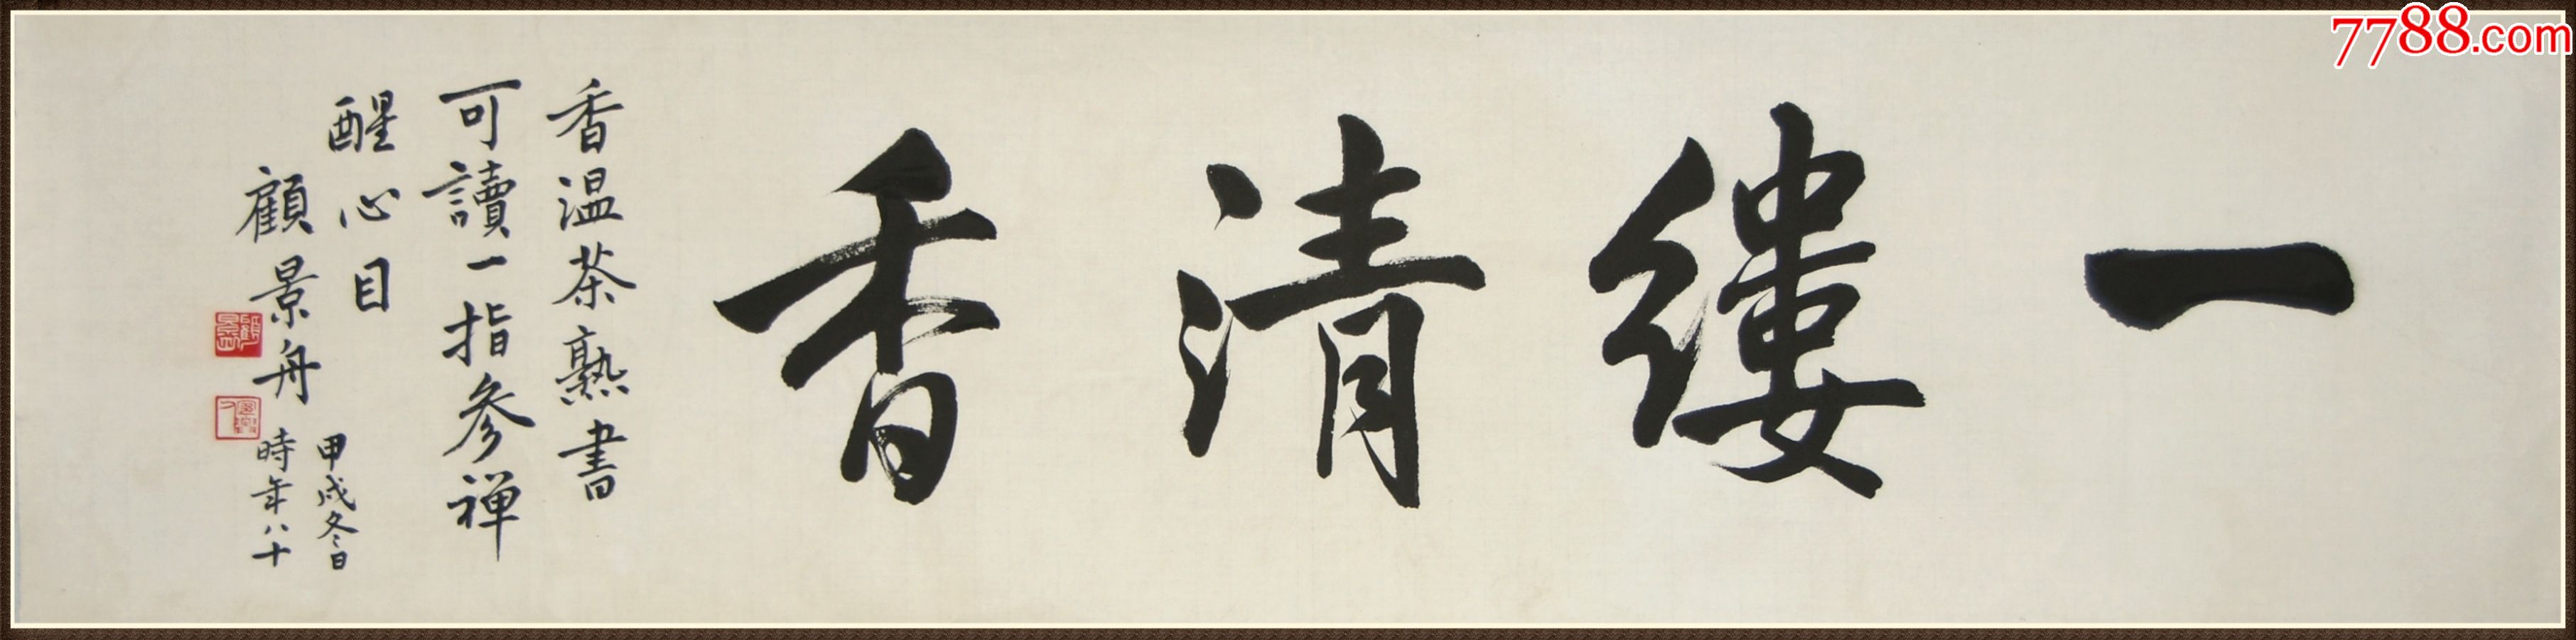 一缕清香
香温茶熟書
可讀一指参禅
醒心目
甲戌冬日
顧景舟
時年八十
7788.com